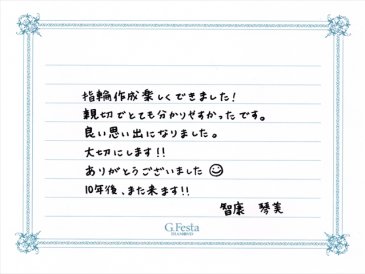 指輪作成楽しくできました!
親切でとても分かりやすかったです。
良い思い出になりました。
大切にします!!
ありがとうございました
10年後、また来ます!!
智康 琴美
G.Festa
DIAMOND